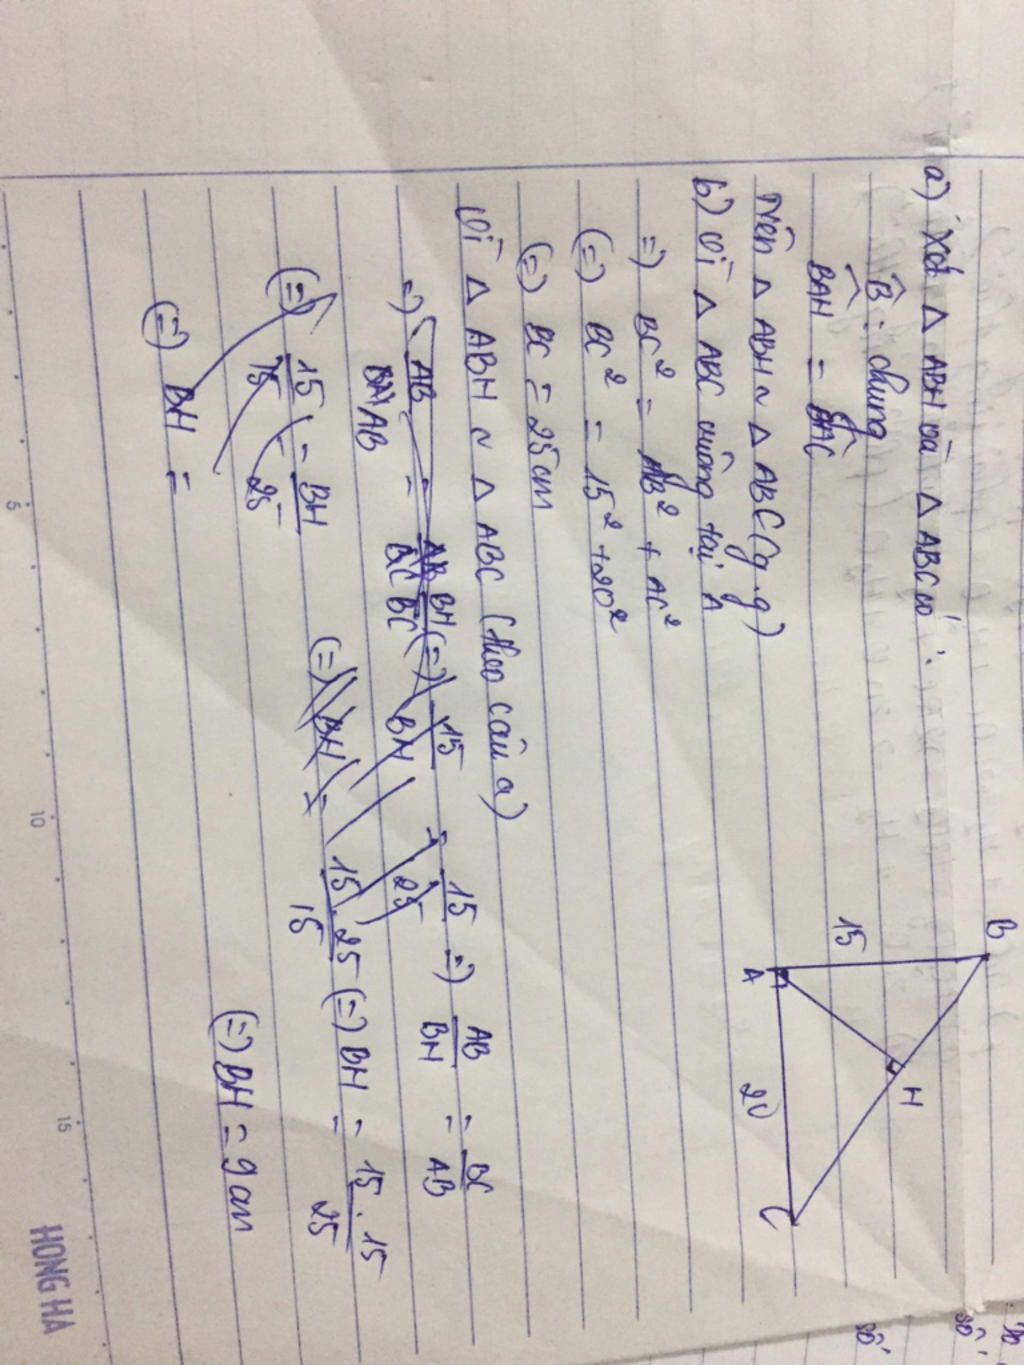 a) Xét Δ ABH và Δ ABC có:
B̂ : chung
BAH = BAC
Nên Δ ABH ~ Δ ABC (g.g)
b) Vì Δ ABC vuông tại A
=) BC² = AB² + AC²
(=) BC² = 15² + 20²
(=) BC = 25cm
Vì Δ ABH ~ Δ ABC (theo câu a)
=) AB/AB = BH/BC (=) 15/BH = 15/25 =) AB/BH = BC/AB
(=) 15/15 = BH/25 (=) BH = 15.25/15 (=) BH = 15.15/25
(=) BH = (=) BH = 9cm
B
15
A
H
20
C
5 10 15
HONG HA